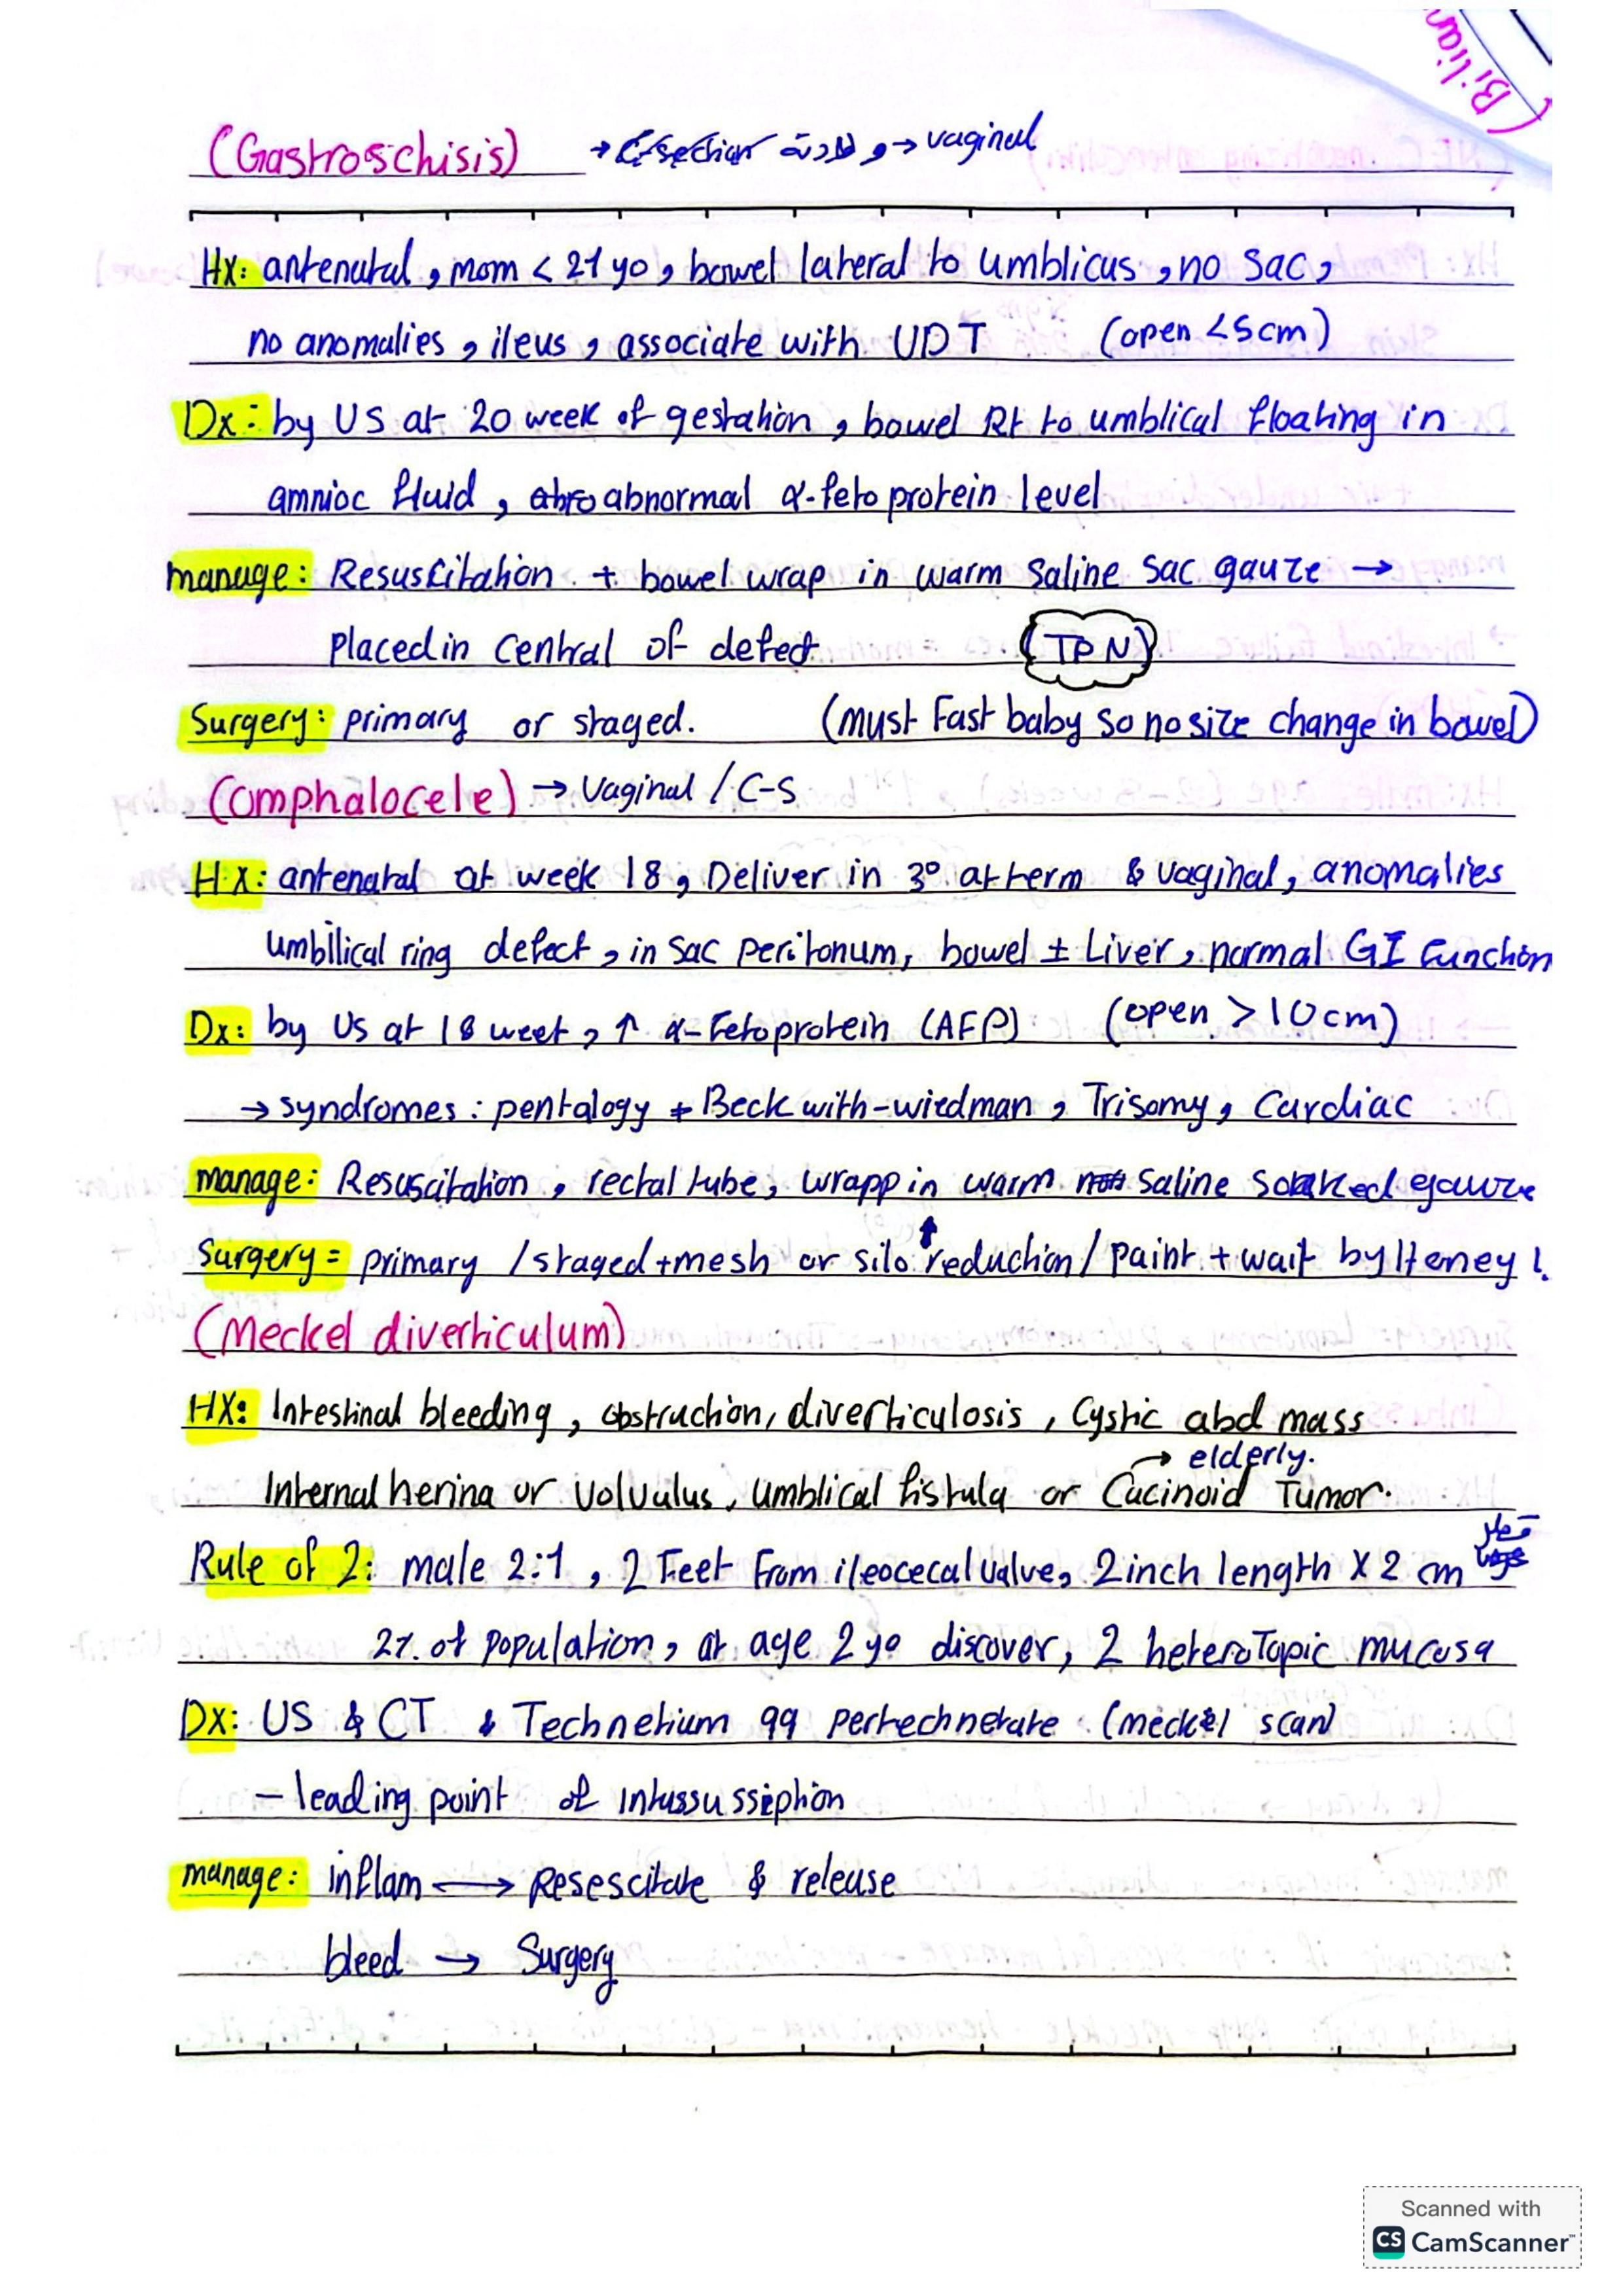 (Biliar
(Gastroschisis) → C-section ولادة و → vaginal
Hx: antenatal, mom < 21 yo, bowel lateral to umblicus, no sac,
no anomalies, ileus, associate with UDT (open <5cm)
Dx: by US at 20 week of gestation, bowel Rt to umblical floating in
amnioc fluid, abnormal α-feto protein level
manage: Resuscitation + bowel wrap in warm saline sac gauze →
placed in central of defect (TPN)
Surgery: primary or staged. (must Fast baby so no size change in bowel)
(omphalocele) → Vaginal / C-S
HX: antenatal at week 18, Deliver in 3° at term & vaginal, anomalies
umbilical ring defect, in sac peritonum, bowel ± Liver, normal GI function
Dx: by US at 18 week, ↑ α-Fetoprotein (AFP) (open > 10cm)
→ syndromes: pentalogy + Beckwith-wiedman, Trisomy, Cardiac
manage: Resuscitation, rectal tube, wrapp in warm saline soaked gauze
Surgery = primary / staged + mesh or silo reduction / paint + wait by Heney!
(Meckel diverticulum)
HX: Intestinal bleeding, obstruction, diverticulosis, Cystic abd mass
→ elderly.
Internal herina or volvulus, umblical fistula or Cacinoid Tumor.
Rule of 2: male 2:1, 2 Feet From ileocecal valve, 2 inch length X 2 cm قطر
2% of population, at age 2 yo discover, 2 heteroTopic mucosa
Dx: US & CT & Technetium 99 pertechnetate (meckel scan)
– leading point of intussusseption
manage: inflam ⟷ Resescitate & release
bleed → Surgery
Scanned with
CS CamScanner™